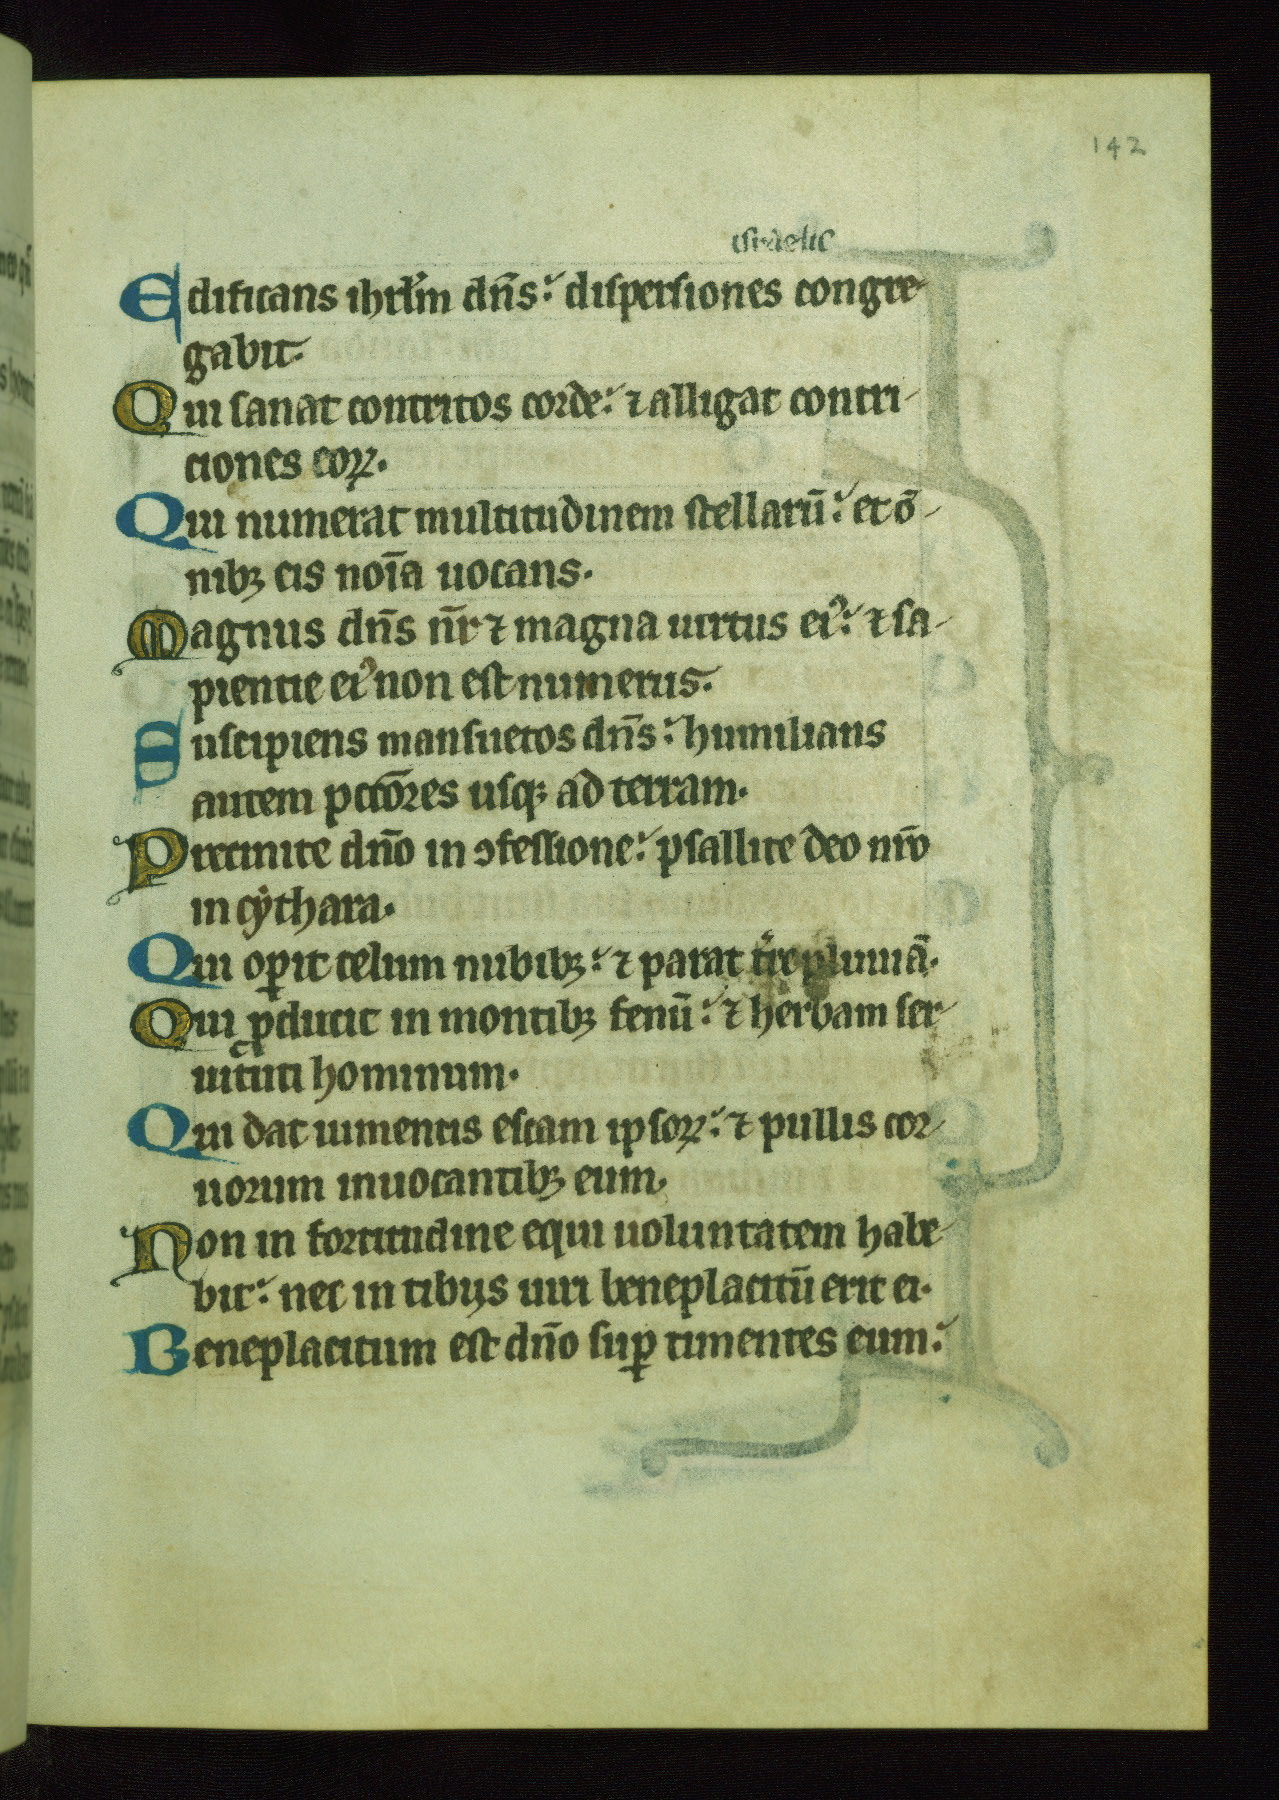 142
israelis
Edificans ihrl̄m dn̄s: dispersiones congre-
gabit.
Qui sanat contritos corde: ⁊ alligat contri-
ciones eoꝝ.
Qui numerat multitudinem stellarū: et ō-
nibꝫ eis noīa uocans.
Magnus dn̄s nr̄ ⁊ magna uirtus eiꝰ: ⁊ sa-
pientie eiꝰ non est numerus.
Suscipiens mansuetos dn̄s: humilians
autem pccōres usqꝫ ad terram.
Precinite dn̄o in ꝯfessione: psallite deo nr̄o
in cythara.
Qui oꝑit celum nubibꝫ: ⁊ parat t̄re pluuiā.
Qui ꝓducit in montibꝫ fenū: ⁊ herbam ser-
uituti hominum.
Qui dat iumentis escam ipsoꝝ: ⁊ pullis cor-
uorum inuocantibꝫ eum.
Non in fortitudine equi uoluntatem habe-
bit: nec in tibijs uiri beneplacitū erit ei.
Beneplacitum est dn̄o suꝑ timentes eum: